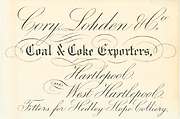 Cory, Lohden & Co
Coal & Coke Exporters,
Hartlepool
and
West Hartlepool
Fitters for Hedley Hope Colliery.